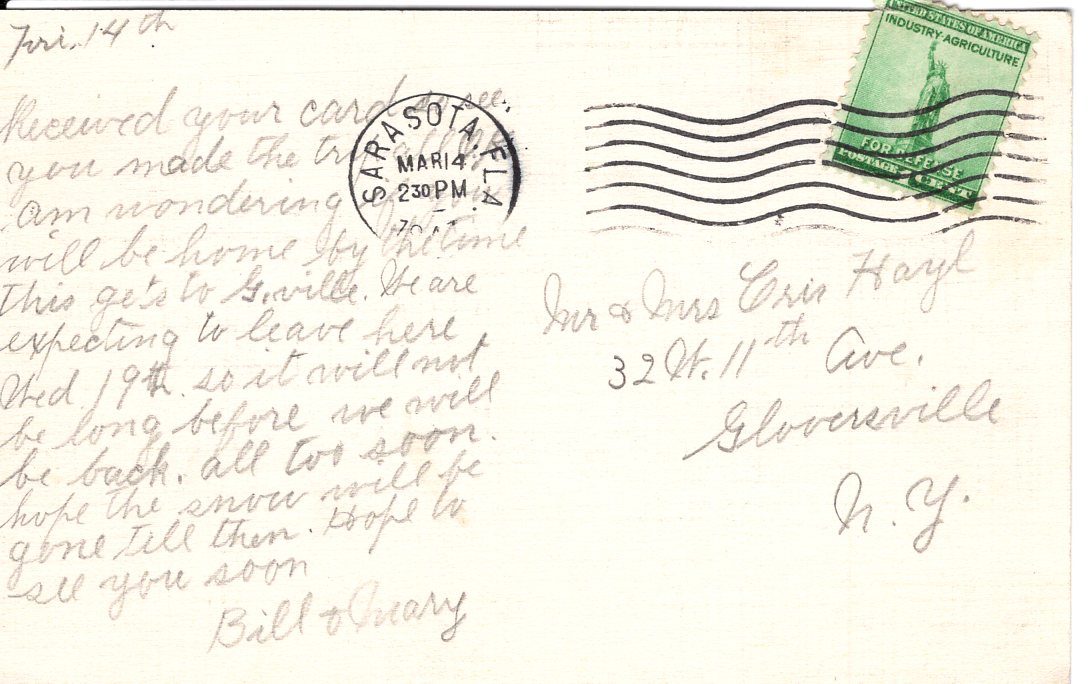 Fri. 14th
Received your card so see
you made the trip
am wondering
will be home by the time
this gets to G.ville. We are
expecting to leave here
Wed 19th. so it will not
be long before we will
be back. all too soon.
hope the snow will be
gone till then. Hope to
see you soon
Bill & Mary
SARASOTA, FLA.
MAR 14
230 PM
UNITED STATES OF AMERICA
INDUSTRY·AGRICULTURE
FOR DEFENSE
POSTAGE 1 CENT
Mr & Mrs Eris Hayl
32 W. 11th Ave.
Gloversville
N. Y.